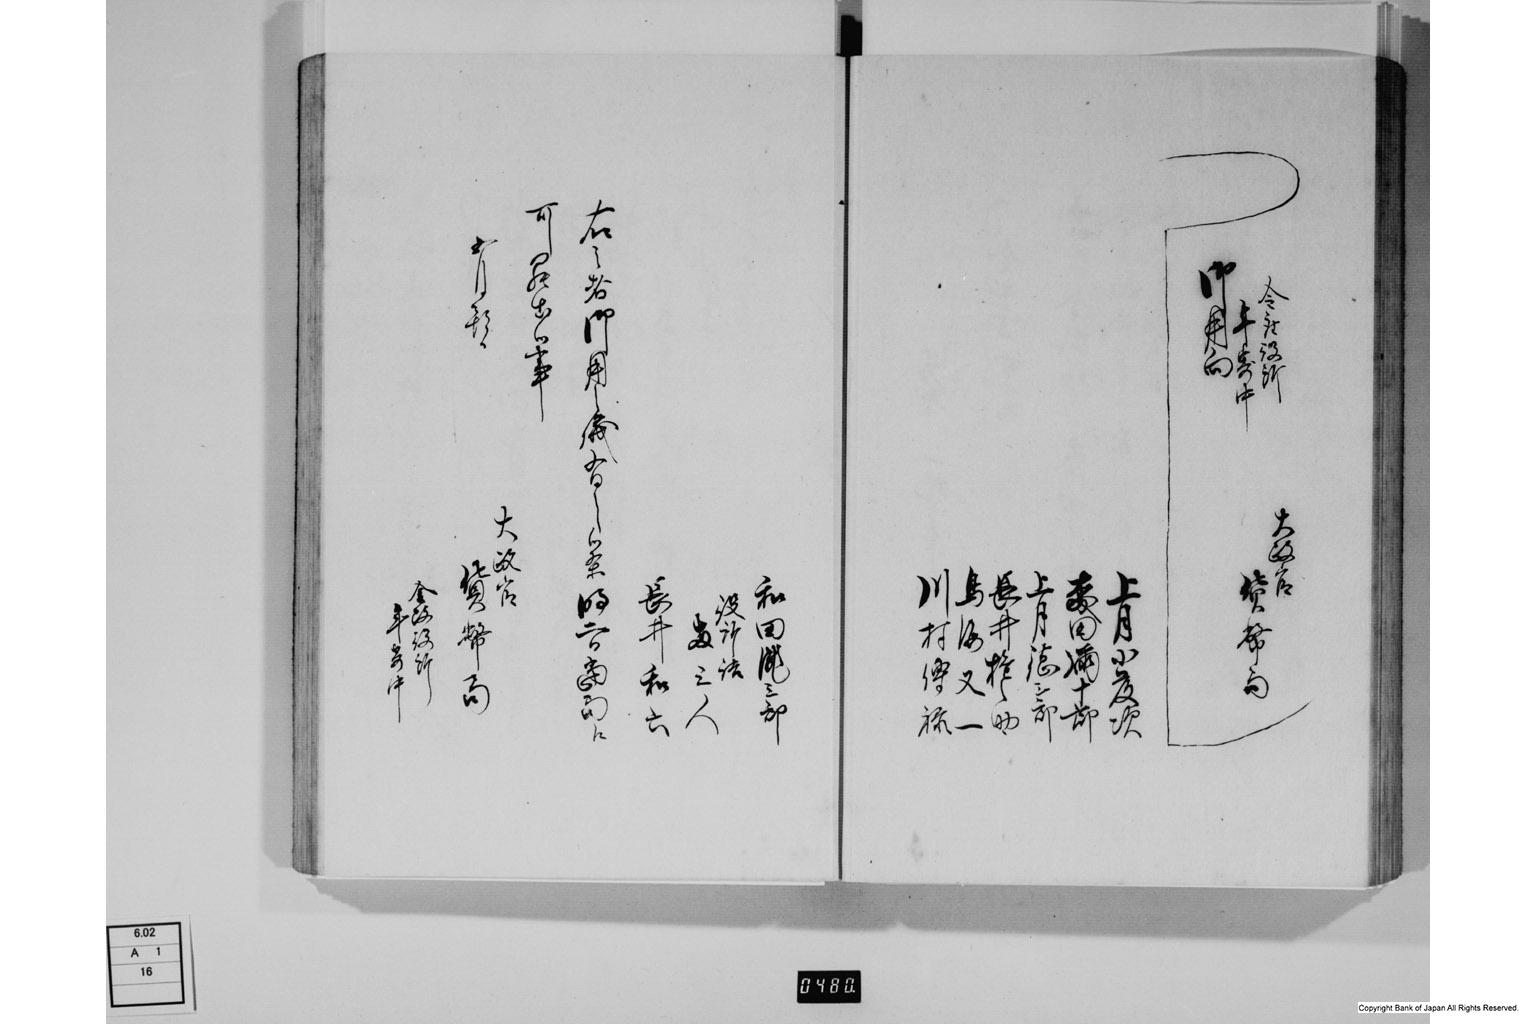 大政官
貨幣局
金改役所
年寄中
御用向
上月小荻次
森田満十郎
上月徳三郎
長井権助
鳥海又一
川村傳禄
和田勝三郎
役所詰
長井和六
右之者御用儀有之候条明二日当局江
可罷出候事
五月朔
大政官
貨幣局
金改役所
年寄中
6.02
A 1
16
0480
Copyright Bank of Japan All Rights Reserved.